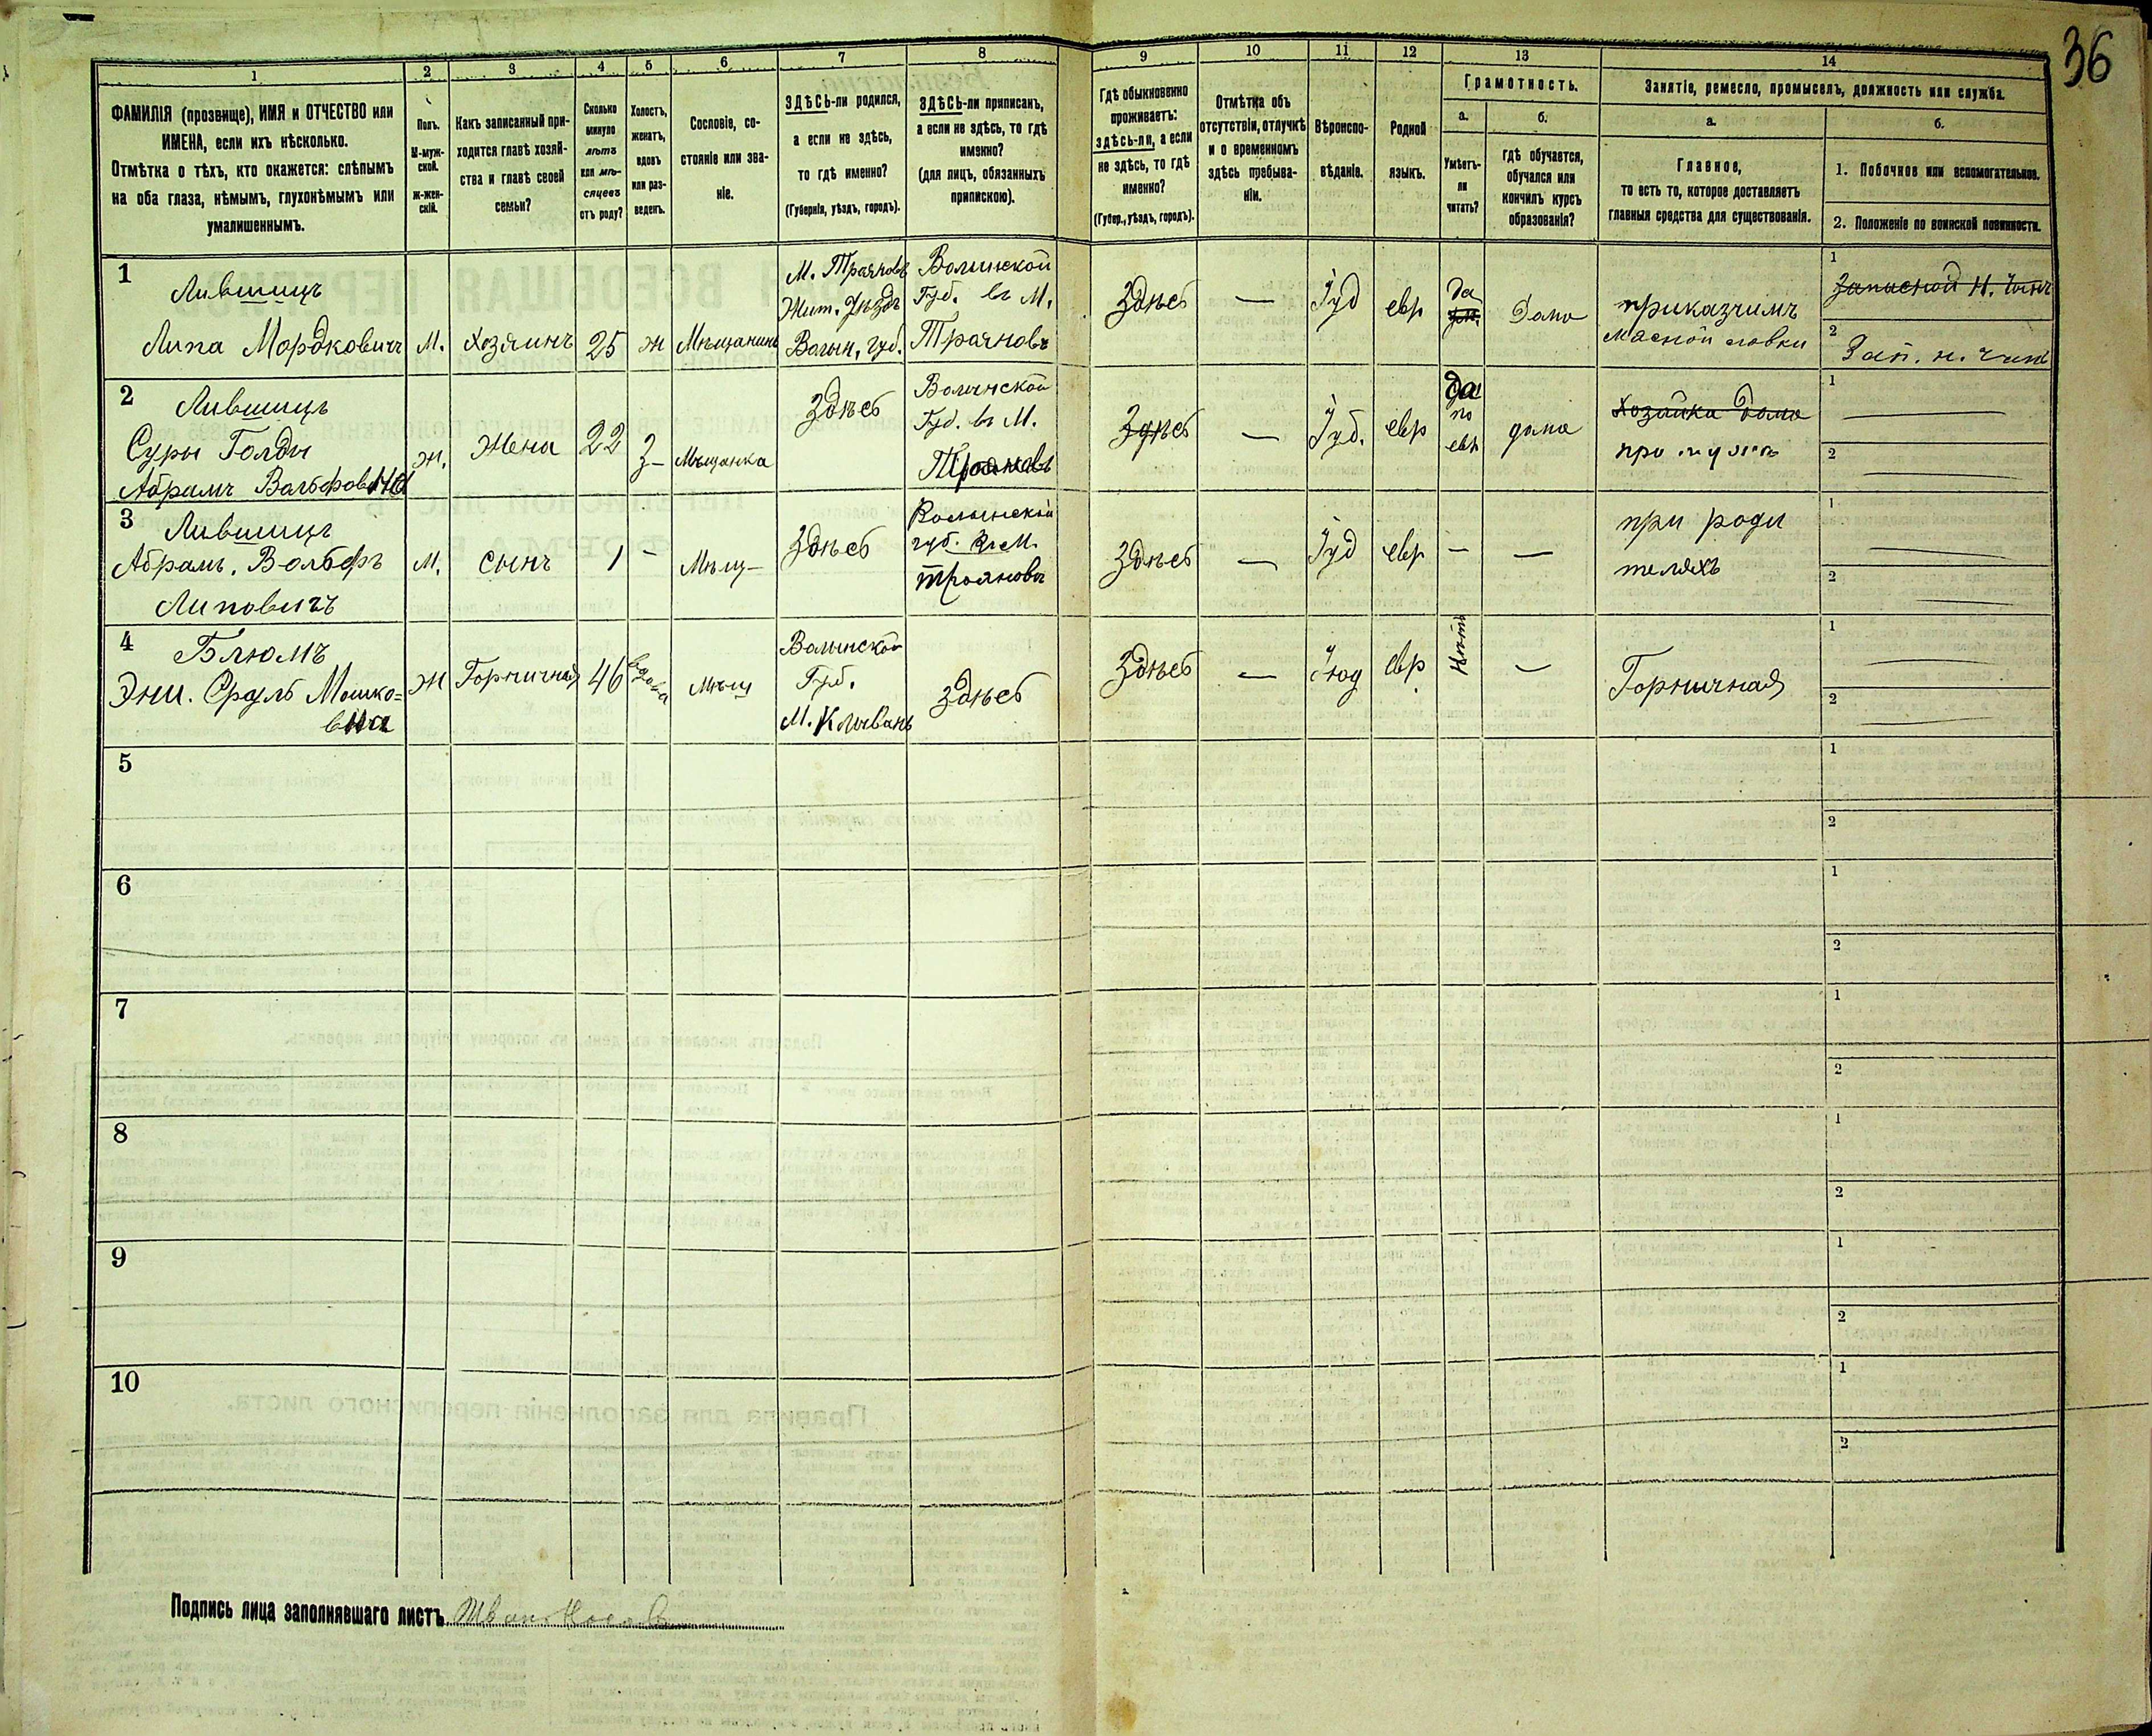 36
1 2 3 4 5 6 7 8 9 10 11 12 13 14
ФАМИЛІЯ (прозвище), ИМЯ и ОТЧЕСТВО или
ИМЕНА, если ихъ нѣсколько.
Отмѣтка о тѣхъ, кто окажется: слѣпымъ
на оба глаза, нѣмымъ, глухонѣмымъ или
умалишеннымъ.
Полъ.
М-муж-
ской.
ж-жен-
скій.
Какъ записанный при-
ходится главѣ хозяй-
ства и главѣ своей
семьи?
Сколько
минуло
лѣтъ
или мѣ-
сяцевъ
отъ роду?
Холостъ,
женатъ,
вдовъ
или раз-
веденъ.
Сословіе, со-
стояніе или зва-
ніе.
ЗДѢСЬ-ли родился,
а если не здѣсь,
то гдѣ именно?
(Губернія, уѣздъ, городъ).
ЗДѢСЬ-ли приписанъ,
а если не здѣсь, то гдѣ
именно?
(для лицъ, обязанныхъ
припискою).
Гдѣ обыкновенно
проживаетъ:
здѣсь-ли, а если
не здѣсь, то гдѣ
именно?
(Губер., уѣздъ, городъ).
Отмѣтка объ
отсутствіи, отлучкѣ
и о временномъ
здѣсь пребыва-
ніи.
Вѣроиспо-
вѣданіе.
Родной
языкъ.
Грамотность.
а.
Умѣетъ-
ли
читать?
б.
гдѣ обучается,
обучался или
кончилъ курсъ
образованія?
Занятіе, ремесло, промыселъ, должность или служба.
а.
Главное,
то есть то, которое доставляетъ
главныя средства для существованія.
б.
1. Побочное или вспомогательное.
2. Положеніе по воинской повинности.
1
Лившицъ
Липа Мордковичъ
М.
Хозяинъ
25
ж
Мѣщанинъ
М. Трояновъ
Жит. Уѣздъ
Волын. губ.
Волынской
Губ. въ М.
Трояновъ
Здѣсь
—
Іуд
евр
да
Дома
приказчикъ
мясной лавки
1
Запасной Н. Чинъ
2
Зап. н. чин
2
Лившицъ
Суры Голды
Абрамъ Вольфовна
ж.
Жена
22
З—
Мѣщанка
Здѣсь
Волынской
Губ. въ М.
Трояновъ
Здѣсь
—
Іуд.
евр
да
по
евр
дома
хозяйка дома
при мужѣ
1
2
3
Лившицъ
Абрамъ. Вольфъ
Липовичъ
М.
Сынъ
1
—
Мѣщ—
Здѣсь
Волынской
губ. въ М.
Трояновъ
Здѣсь
—
Іуд
евр
—
—
при роди
теляхъ
1
2
4
Блюмъ
Эни. Сруль Мошко=
вна
ж
Горничная
46
вдова
мѣщ
Волынской
Губ.
М. Клывань
Здѣсь
Здѣсь
—
Іюд
евр
Нѣтъ
—
Горничная
1
2
5
1
2
6
1
2
7
1
2
8
1
2
9
1
2
10
1
2
Подпись лица заполнявшаго листъ